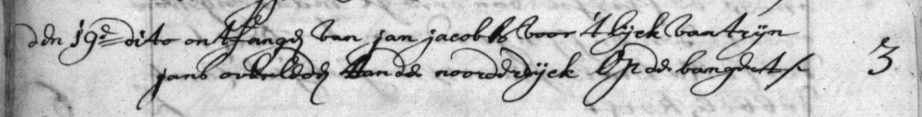 den 19e dito ontfangen van jan jacobs voor 't lijck van trijn
jans overleden aan de noorderdijck op de bangert 3